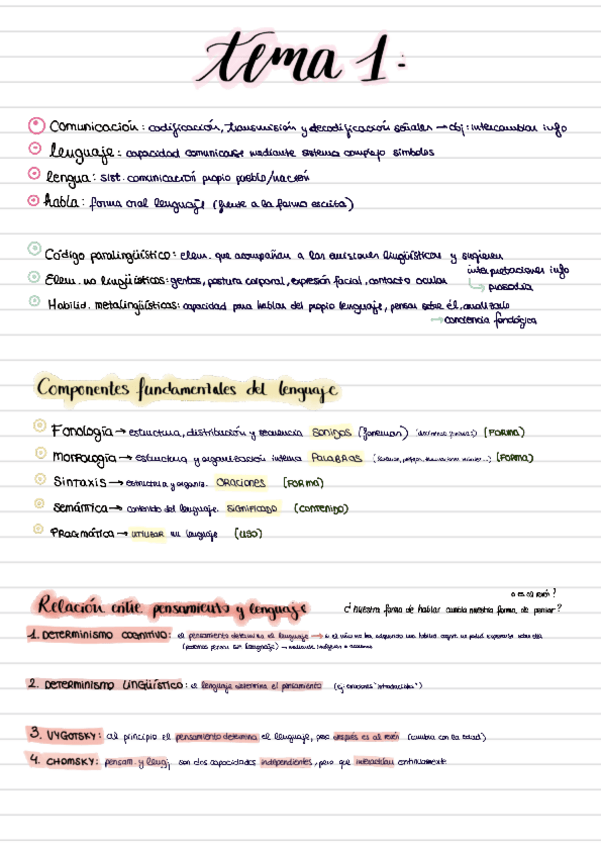 tema 1:
Comunicación: codificación, transmisión y decodificación señales → obj: intercambiar info
lenguaje: capacidad comunicarse mediante sistema complejo símbolos
lengua: sist. comunicación propio pueblo/nación
habla: forma oral lenguaje (frente a la forma escrita)
Código paralingüístico: elem. que acompañan a las emisiones lingüísticas y sugieren
interpretaciones info
↳ prosodia
Elem. no lingüísticos: gestos, postura corporal, expresión facial, contacto ocular
Habilid. metalingüísticas: capacidad para hablar del propio lenguaje, pensar sobre él, analizarlo
→ conciencia fonológica
Componentes fundamentales del lenguaje
Fonología → estructura, distribución y secuencia SONIDOS (fonemas) (FORMA)
Morfología → estructura y organización interna PALABRAS (FORMA)
Sintaxis → estructura y organiz. ORACIONES (FORMA)
Semántica → contenido del lenguaje. SIGNIFICADO (CONTENIDO)
Pragmática → UTILIZAR el lenguaje (USO)
Relación entre pensamiento y lenguaje
o es al revés?
¿nuestra forma de hablar cambia nuestra forma de pensar?
1. DETERMINISMO COGNITIVO: el pensamiento determina el lenguaje → si el niño no ha adquirido una habilid. cognit. no podrá expresarla
(podemos pensar sin lenguaje) → mediante imágenes
2. DETERMINISMO LINGÜÍSTICO: el lenguaje determina el pensamiento (ej: emociones)
3. VYGOTSKY: al principio el pensamiento determina el lenguaje, pero después es al revés (cambia con la edad)
4. CHOMSKY: pensam. y leng. son dos capacidades independientes, pero que interactúan continuamente